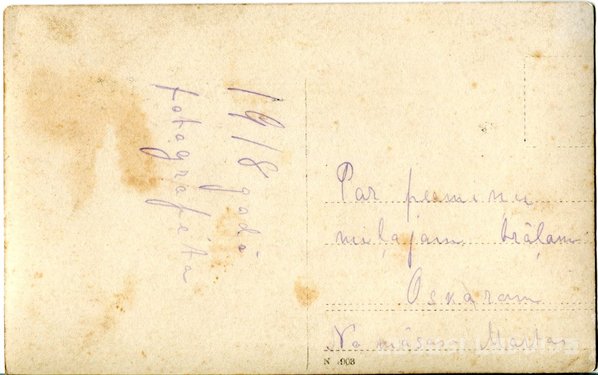 1918 gadā
fotografēta
Par peminu
miļajam brāļam
Oskaram
No māsas Martas
N 4903